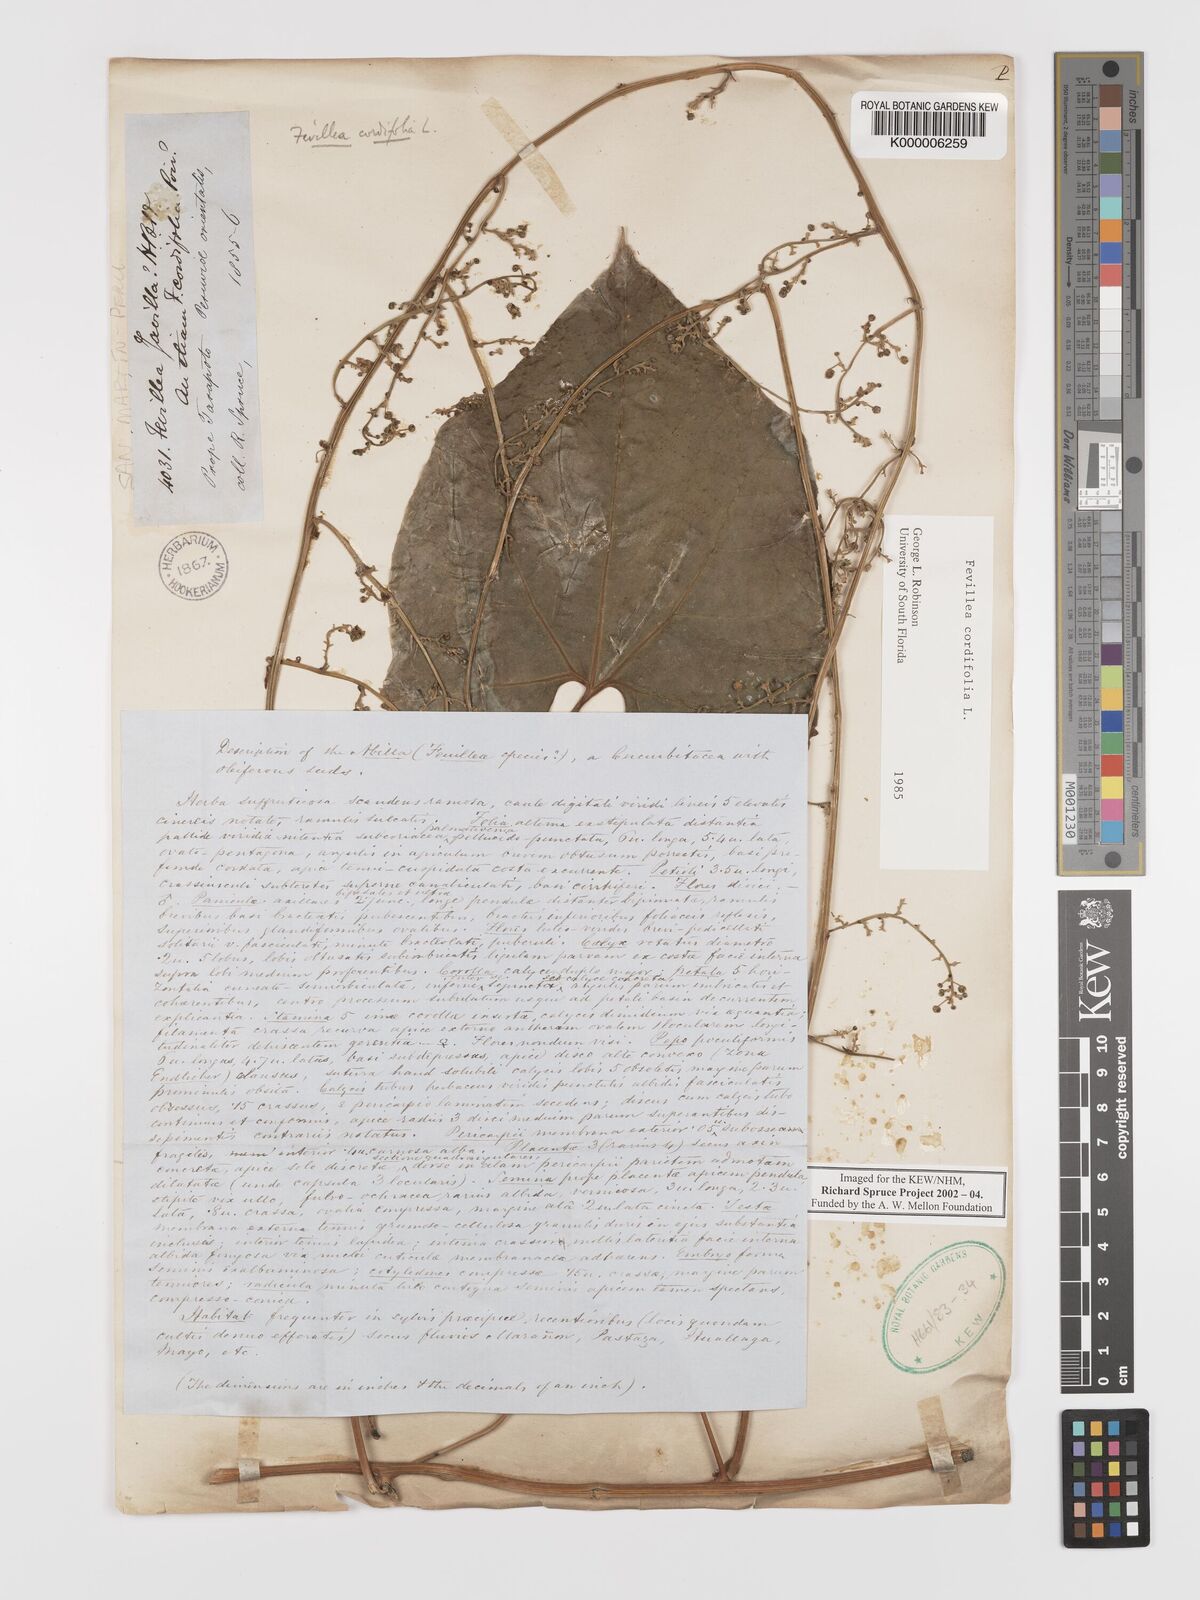 P
ROYAL BOTANIC GARDENS KEW
K000006259
Fevillea cordifolia L.
SAN MARTIN - PERU
4031. Feuillea Javilla? HBK?
An etiam F. cordifolia Poir?
Prope Tarapoto Peruviae orientalis,
coll. R. Spruce, 1855-6
HERBARIUM
1867.
HOOKERIANUM
Fevillea cordifolia L.
George L. Robinson
University of South Florida
1985
Description of the Abilla (Feuillea species?), a Cucurbitacea with
oliferous seeds.
Herba suffruticosa scandens ramosa, caule digitali viridi lineis 5 elevatis
cinereis notato, ramulis sulcatis. Folia alterna exstipulata distantia
pallide viridia nitentia subcoriacea palmativenia pellucido punctata, 6u. longa, 5.4u. lata,
ovato-pentagona, angulis in apiculum curvum obtusum porrectis, basi pro-
funde cordata, apice tenui-cuspidata costa excurrente. Petioli 3.5u. longi,
crassiusculi subteretes superne canaliculati, basi cirrhiferi. Flores dioici;—
♂. Paniculae axillares bipedales et ultra, longe pendulae distanter bipinnatae, ramulis
brevibus basi bracteatis pubescentibus, bracteis inferioribus foliaceis reflexis,
superioribus glanduliformibus ovatibus. Flores luteo-virides brevi-pedicellati
solitarii v. fasciculati, minuti bracteolati, puberuli. Calyx rotatus diametro
2u. 5 lobus, lobis obtusatis subimbricatis ligulam parvam ex costae facie interna
supra lobi medium proferentibus. Corolla calyce duplo major, petala 5 hori-
zontalia cuneato-semiorbiculata, inferne
coharentibus, centro processum subulatum usque ad petali basin decurrentem
explicantia. Stamina 5 imae corollae inserta, calycis dimidium via aequantia;
filamenta crassa recurva apice externo antheram ovalem 1locularem longi-
tudinaliter dehiscentem gerentia.— ♀. Flores nondum visi. Pepo poculiformis
3u. longus, 4.7u. latus, basi subdepressus, apice disco alte convexo (Zona
Endlicher) clausus, sutura haud solubili calycis lobis 5 obsoletis margine parum
prominulis obsita. Calycis tubus herbaceus viridis punctulis albidis fasciculatis
obsessus, ·15 crassus, e pericarpii laminatim secedens; discus cum calycis tubo
continuus et conformis, apice radiis 3 disci medium parum superantibus dis-
sepimentis contrariis notatus. Pericarpii membrana exterior ·05u. subossea
fragilis, interior ·4u. carnosa alba. Placentae 3 (rarius 4) secus axin
concretae, apice solo discretae, sectione quadrangulares dorso in alam pericarpii parietem admotam
dilatatae (unde capsula 3 locularis). Semina prope placentae apicem pendula
stipite via ullo, fulvo-ochracea rarius albida, 3u. longa, 2.3u.
lata, ·8u. crassa, ovalia compressa, margine alâ 2u. lata cincta. Testae
membrana externa tenuis grumoso-cellulosa granulis duris in ejus substantia
inclusis; interior tenuis lapidea; intima crassior mollis latentia facie interna
albida fungosa via nuclei cuticulae membranaceae adhaerens. Embryo forma
seminis exalbuminosa; cotyledones compressae ·45u. crassae, margine parum
tenuiores; radicula minuta hilo contigua seminis apicem tamen spectans,
compresso-conica.
Habitat frequenter in sylvis praecipue recentioribus (locis quondam
cultis denuo efferatis) secus fluvios Marañon, Pastaza, Huallaga,
Mayo, etc.
(The dimensions are in inches & the decimals of an inch).
Imaged for the KEW/NHM,
Richard Spruce Project 2002 – 04.
Funded by the A. W. Mellon Foundation
ROYAL BOTANIC GARDENS
H661/83-34
KEW
inches
Don Williams
M001230
KEW
Royal Botanic Gardens
copyright reserved
0 1 2 3 4 5 6 7 8 9 10
cm